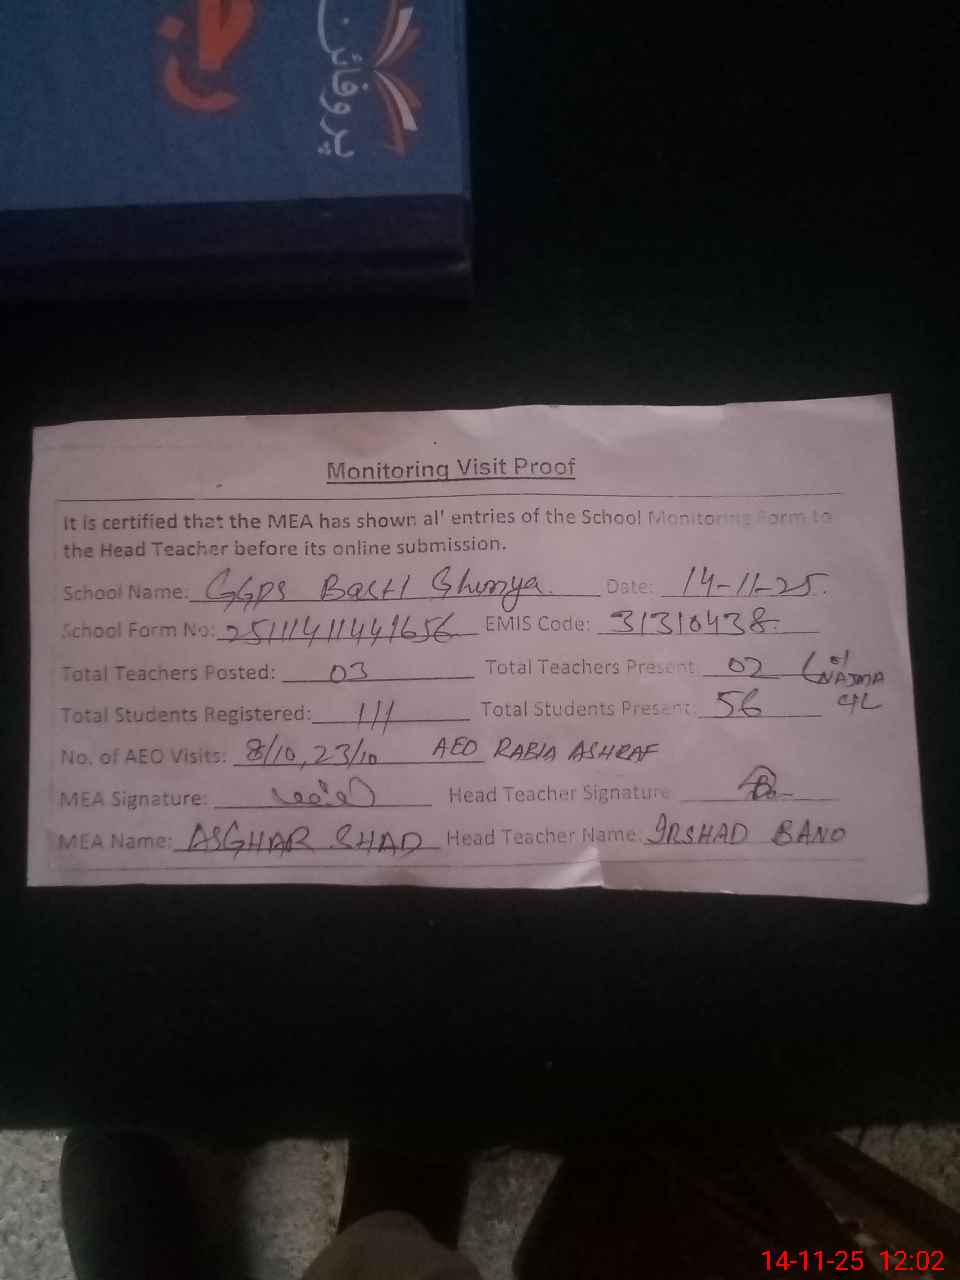 پروفائل
Monitoring Visit Proof
It is certified that the MEA has shown al' entries of the School Monitoring Form to
the Head Teacher before its online submission.
School Name: GGPS Basti Date: 14-11-25.
School Form No: EMIS Code: 31310438
Total Teachers Posted: 03 Total Teachers Present: 02 NAJMA
Total Students Registered: 111 Total Students Present: 56
No. of AEO Visits: 8/10, 23/10 AEO RABIA ASHRAF
MEA Signature: Head Teacher Signature
MEA Name: ASGHAR SHAD Head Teacher Name: IRSHAD BANO
14-11-25 12:02